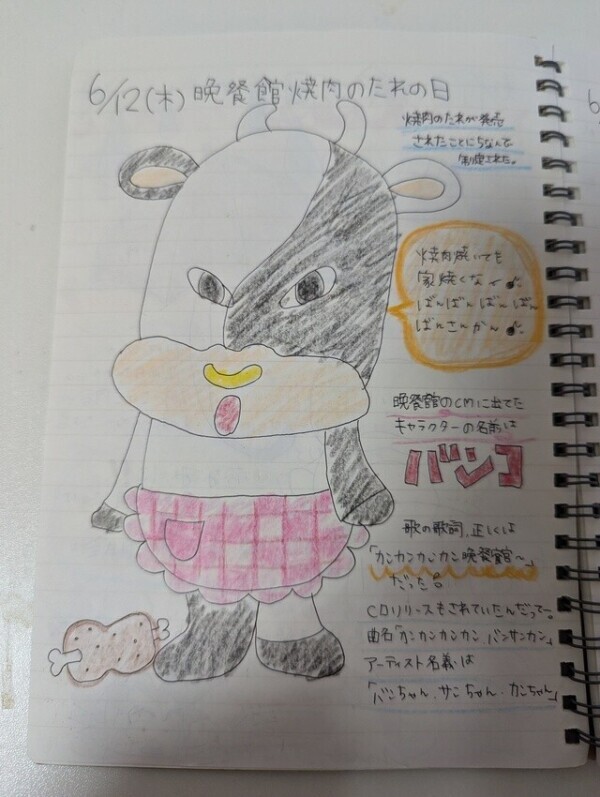 6/12(木) 晩餐館焼肉のたれの日
焼肉のたれが発売
されたことにちなんで
制定された。
焼肉焼いても
家焼くなィ♪
ばんばんばんばん
ばんさんかん♪
晩餐館のCMに出てた
キャラクターの名前は
バンコ
歌の歌詞、正しくは
「カンカンカンカン晩餐館〜」
だった。
CDリリースもされていたんだって〜。
曲名「カンカンカンカン バンサンカン」
アーティスト名義は
「バンちゃん、サンちゃん・カンちゃん」
6